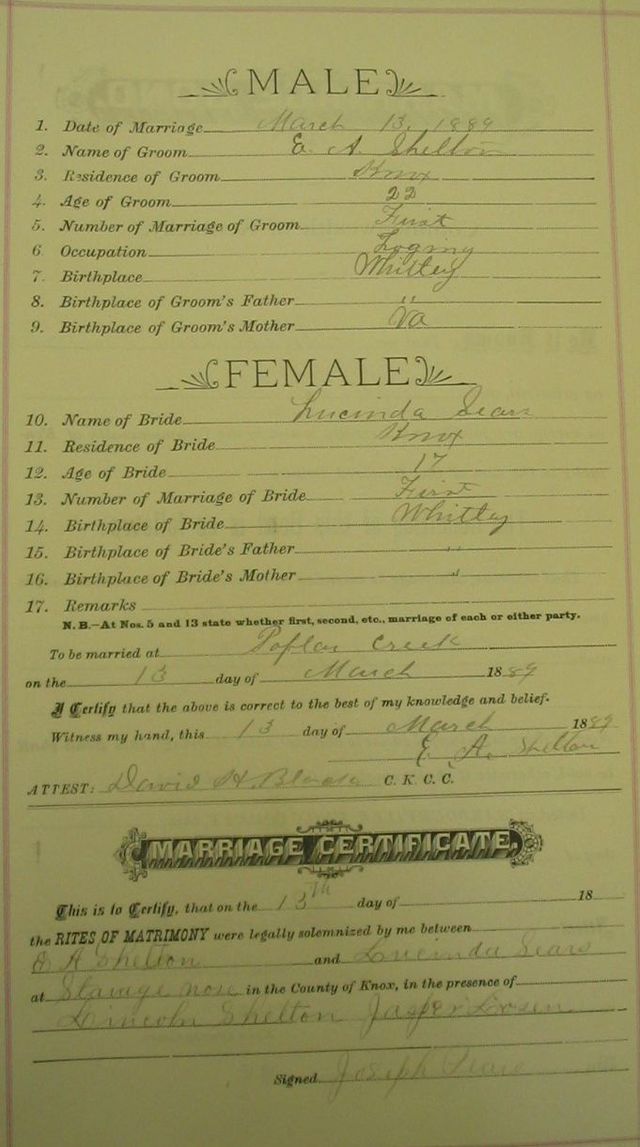 MALE
1. Date of Marriage March 13, 1889
2. Name of Groom E. A. Shelton
3. Residence of Groom Knox
4. Age of Groom 22
5. Number of Marriage of Groom First
6. Occupation
7. Birthplace Whitley
8. Birthplace of Groom's Father "
9. Birthplace of Groom's Mother Va
FEMALE
10. Name of Bride Lucinda Sears
11. Residence of Bride Knox
12. Age of Bride 17
13. Number of Marriage of Bride First
14. Birthplace of Bride Whitley
15. Birthplace of Bride's Father "
16. Birthplace of Bride's Mother "
17. Remarks
N. B.—At Nos. 5 and 13 state whether first, second, etc., marriage of each or either party.
To be married at Poplar Creek
on the 13 day of March 1889
I Certify that the above is correct to the best of my knowledge and belief.
Witness my hand, this 13 day of March 1889
E. A. Shelton
ATTEST: David H. C. K. C. C.
MARRIAGE CERTIFICATE.
This is to Certify, that on the 13th day of 18
the RITES OF MATRIMONY were legally solemnized by me between
A Shelton and Lucinda Sears
at in the County of Knox, in the presence of
Lincoln Shelton Jasper
Signed Joseph